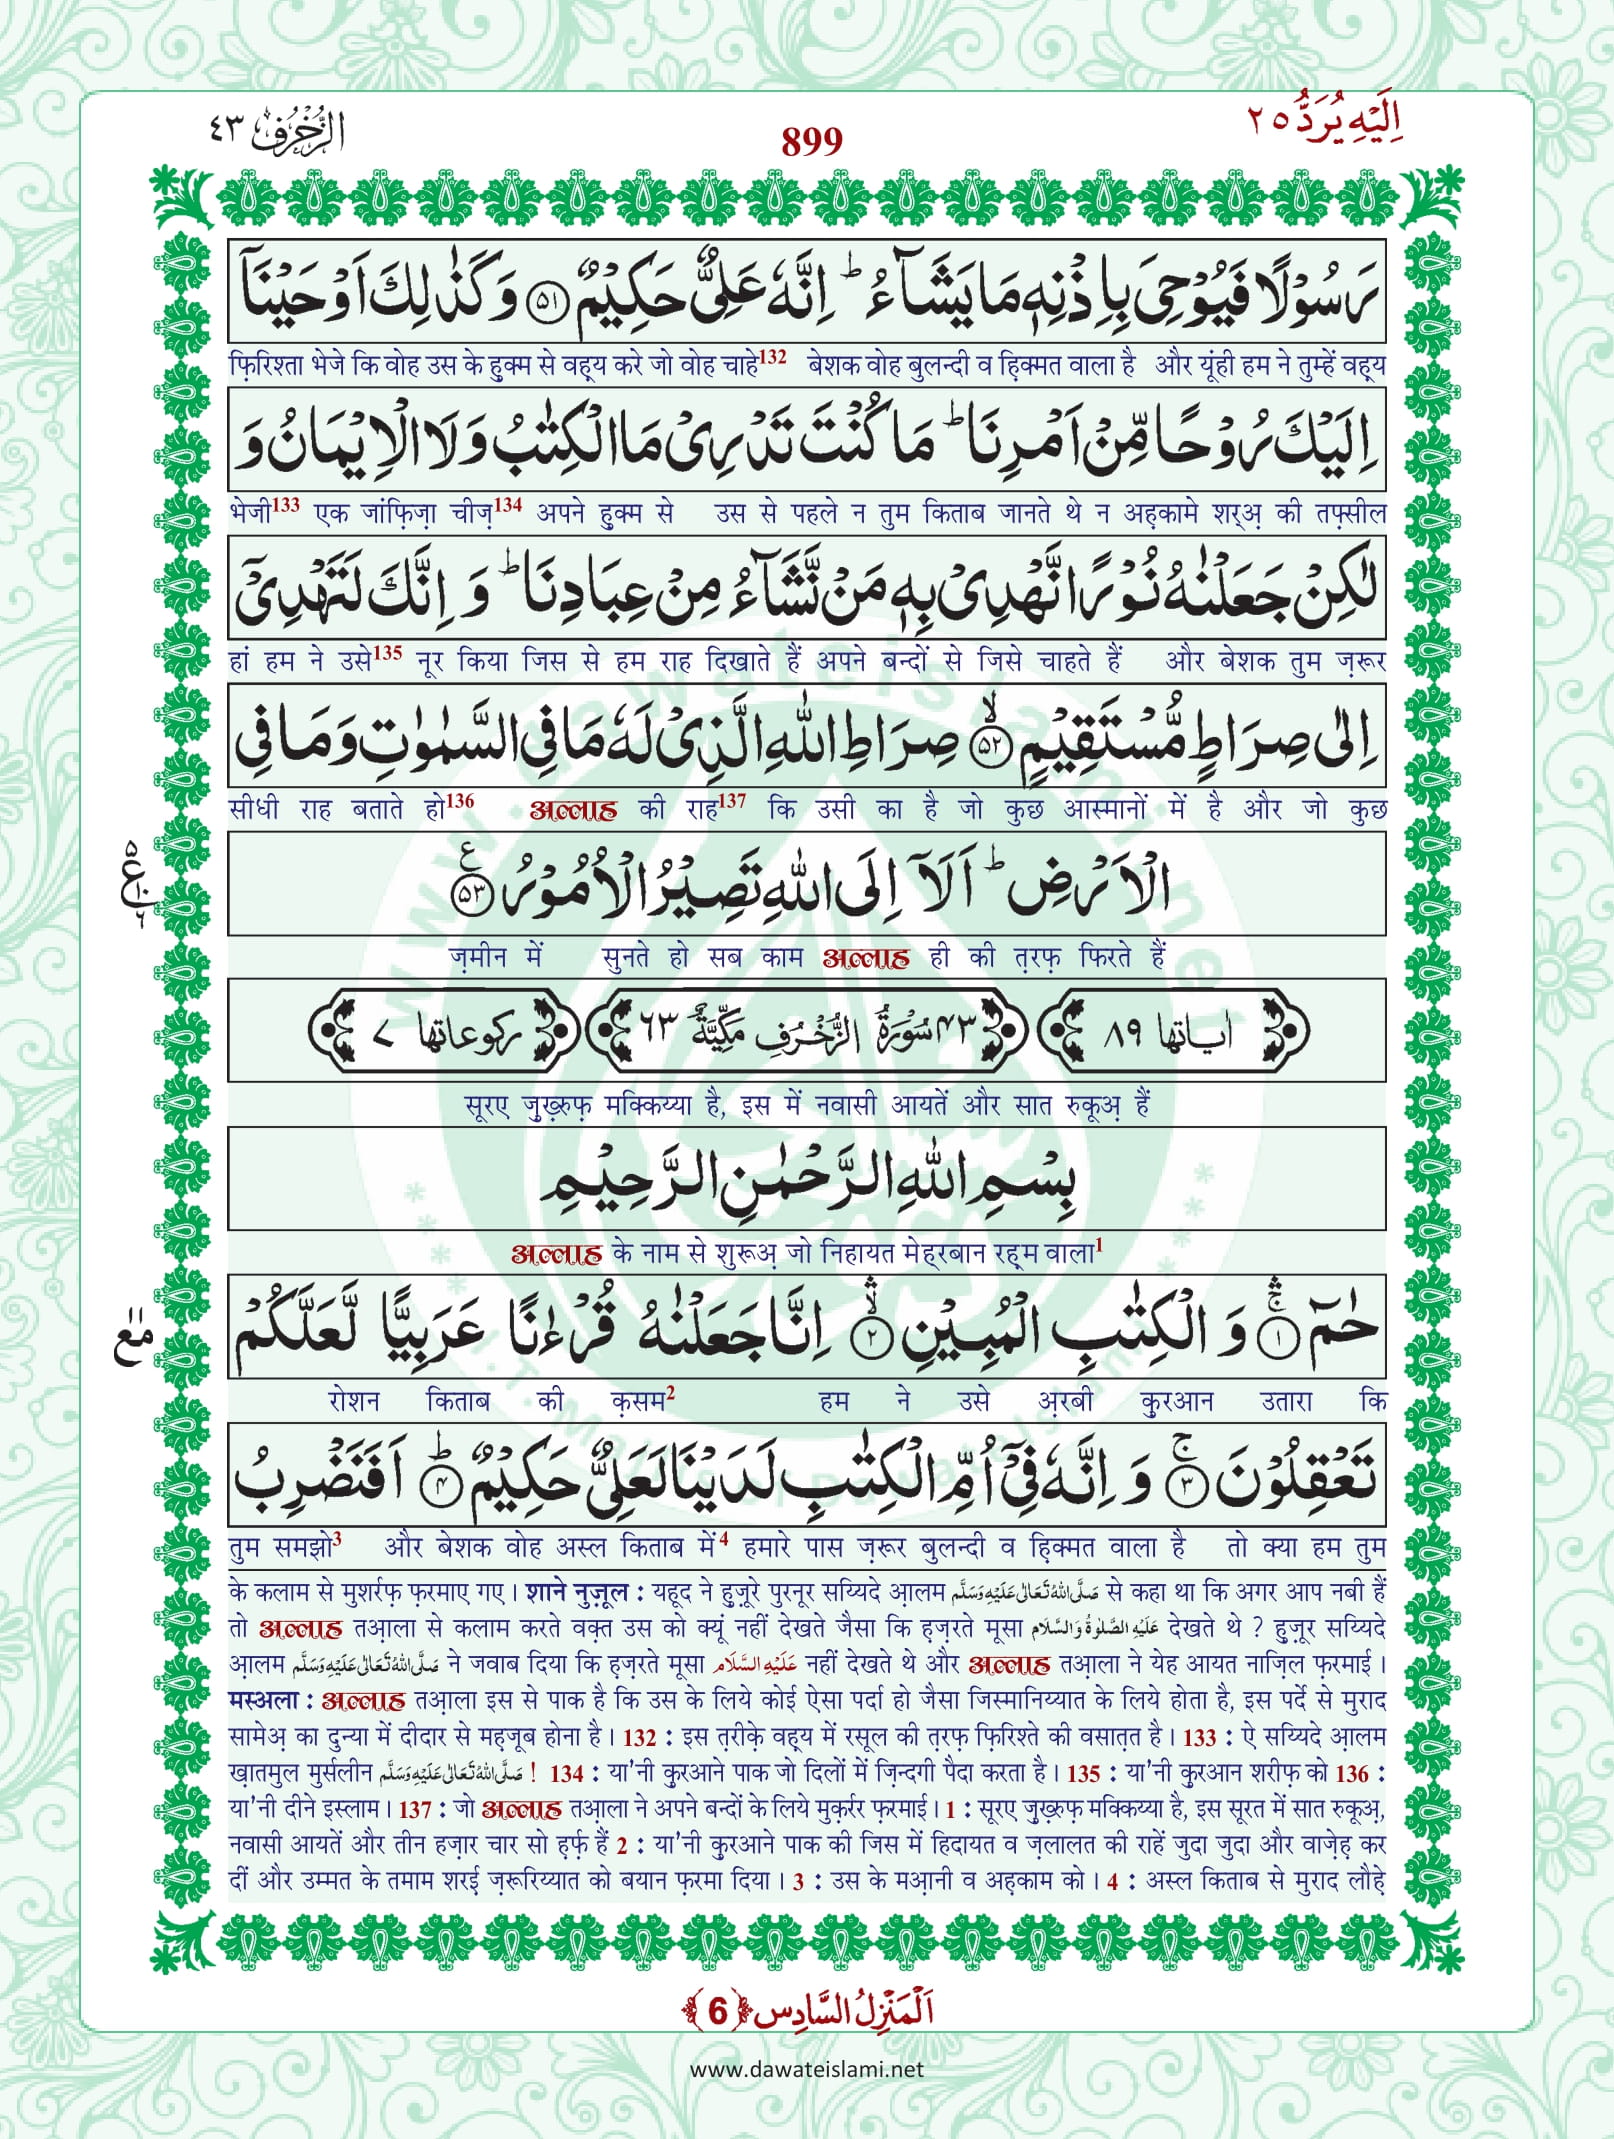 اِلَيْهِ يُرَدُّ ٢٥
899
الزُّخْرُف ٤٣
رَسُوْلًا فَيُوْحِيَ بِاِذْنِهٖ مَا يَشَآءُ ؕ اِنَّهٗ عَلِیٌّ حَكِيْمٌ ﴿۵۱﴾ وَكَذٰلِكَ اَوْحَيْنَاۤ
फ़िरिश्ता भेजे कि वोह उस के हुक्म से वह़्य करे जो वोह चाहे132 बेशक वोह बुलन्दी व ह़िक्मत वाला है और यूंही हम ने तुम्हें वह़्य
اِلَيْكَ رُوْحًا مِّنْ اَمْرِنَا ؕ مَا كُنْتَ تَدْرِیْ مَا الْكِتٰبُ وَلَا الْاِيْمَانُ وَ
भेजी133 एक जांफ़िज़ा चीज़134 अपने हुक्म से उस से पहले न तुम किताब जानते थे न अह़कामे शर्अ़ की तफ़्सील
لٰكِنْ جَعَلْنٰهُ نُوْرًا نَّهْدِیْ بِهٖ مَنْ نَّشَآءُ مِنْ عِبَادِنَا ؕ وَ اِنَّكَ لَتَهْدِیْۤ
हां हम ने उसे135 नूर किया जिस से हम राह दिखाते हैं अपने बन्दों से जिसे चाहते हैं और बेशक तुम ज़रूर
اِلٰی صِرَاطٍ مُّسْتَقِيْمٍ ﴿ۙ۵۲﴾ صِرَاطِ اللّٰهِ الَّذِیْ لَهٗ مَا فِی السَّمٰوٰتِ وَمَا فِی
सीधी राह बताते हो136 अल्लाह की राह137 कि उसी का है जो कुछ आस्मानों में है और जो कुछ
الْاَرْضِ ؕ اَلَاۤ اِلَى اللّٰهِ تَصِيْرُ الْاُمُوْرُ ﴿۵۳﴾ ع
ज़मीन में सुनते हो सब काम अल्लाह ही की त़रफ़ फिरते हैं
اٰياتها ٨٩ ٤٣ سُوْرَةُ الزُّخْرُفِ مَكِّيَّةٌ ٦٣ ركوعاتها ٧
सूरए ज़ुख़्रुफ़ मक्किय्या है, इस में नवासी आयतें और सात रुकूअ़ हैं
بِسْمِ اللّٰهِ الرَّحْمٰنِ الرَّحِيْمِ
अल्लाह के नाम से शुरूअ़ जो निहायत मेहरबान रह़्म वाला1
حٰمٓ ﴿۱﴾ۚۛ وَ الْكِتٰبِ الْمُبِيْنِ ﴿۲﴾ۙۛ اِنَّا جَعَلْنٰهُ قُرْءٰنًا عَرَبِيًّا لَّعَلَّكُمْ
रोशन किताब की क़सम2 हम ने उसे अ़रबी क़ुरआन उतारा कि
تَعْقِلُوْنَ ﴿۳﴾ۚ وَ اِنَّهٗ فِیْۤ اُمِّ الْكِتٰبِ لَدَيْنَا لَعَلِیٌّ حَكِيْمٌ ﴿۴﴾ؕ اَفَنَضْرِبُ
तुम समझो3 और बेशक वोह अस्ल किताब में4 हमारे पास ज़रूर बुलन्दी व ह़िक्मत वाला है तो क्या हम तुम
के कलाम से मुशर्रफ़ फ़रमाए गए। शाने नुज़ूल : यहूद ने हु़ज़ूरे पुरनूर सय्यिदे आ़लम صَلَّى اللهُ تَعَالٰى عَلَيْهِ وَسَلَّم से कहा था कि अगर आप नबी हैं
तो अल्लाह तआ़ला से कलाम करते वक़्त उस को क्यूं नहीं देखते जैसा कि ह़ज़रते मूसा عَلَيْهِ الصَّلٰوةُ وَالسَّلَام देखते थे ? हु़ज़ूर सय्यिदे
आ़लम صَلَّى اللهُ تَعَالٰى عَلَيْهِ وَسَلَّم ने जवाब दिया कि ह़ज़रते मूसा عَلَيْهِ السَّلَام नहीं देखते थे और अल्लाह तआ़ला ने येह आयत नाज़िल फ़रमाई।
मस्अला : अल्लाह तआ़ला इस से पाक है कि उस के लिये कोई ऐसा पर्दा हो जैसा जिस्मानिय्यात के लिये होता है, इस पर्दे से मुराद
सामेअ़ का दुन्या में दीदार से मह़जूब होना है। 132 : इस त़रीक़े वह़्य में रसूल की त़रफ़ फ़िरिश्ते की वसात़त है। 133 : ऐ सय्यिदे आ़लम
ख़ातमुल मुर्सलीन صَلَّى اللهُ تَعَالٰى عَلَيْهِ وَسَلَّم ! 134 : या'नी क़ुरआने पाक जो दिलों में ज़िन्दगी पैदा करता है। 135 : या'नी क़ुरआन शरीफ़ को 136 :
या'नी दीने इस्लाम। 137 : जो अल्लाह तआ़ला ने अपने बन्दों के लिये मुक़र्रर फ़रमाई। 1 : सूरए ज़ुख़्रुफ़ मक्किय्या है, इस सूरत में सात रुकूअ़,
नवासी आयतें और तीन हज़ार चार सो ह़र्फ़ हैं 2 : या'नी क़ुरआने पाक की जिस में हिदायत व ज़लालत की राहें जुदा जुदा और वाज़ेह़ कर
दीं और उम्मत के तमाम शरई ज़रूरिय्यात को बयान फ़रमा दिया। 3 : उस के मआ़नी व अह़काम को। 4 : अस्ल किताब से मुराद लौह़े
اَلْمَنْزِلُ السَّادِس ﴿6﴾
www.dawateislami.net